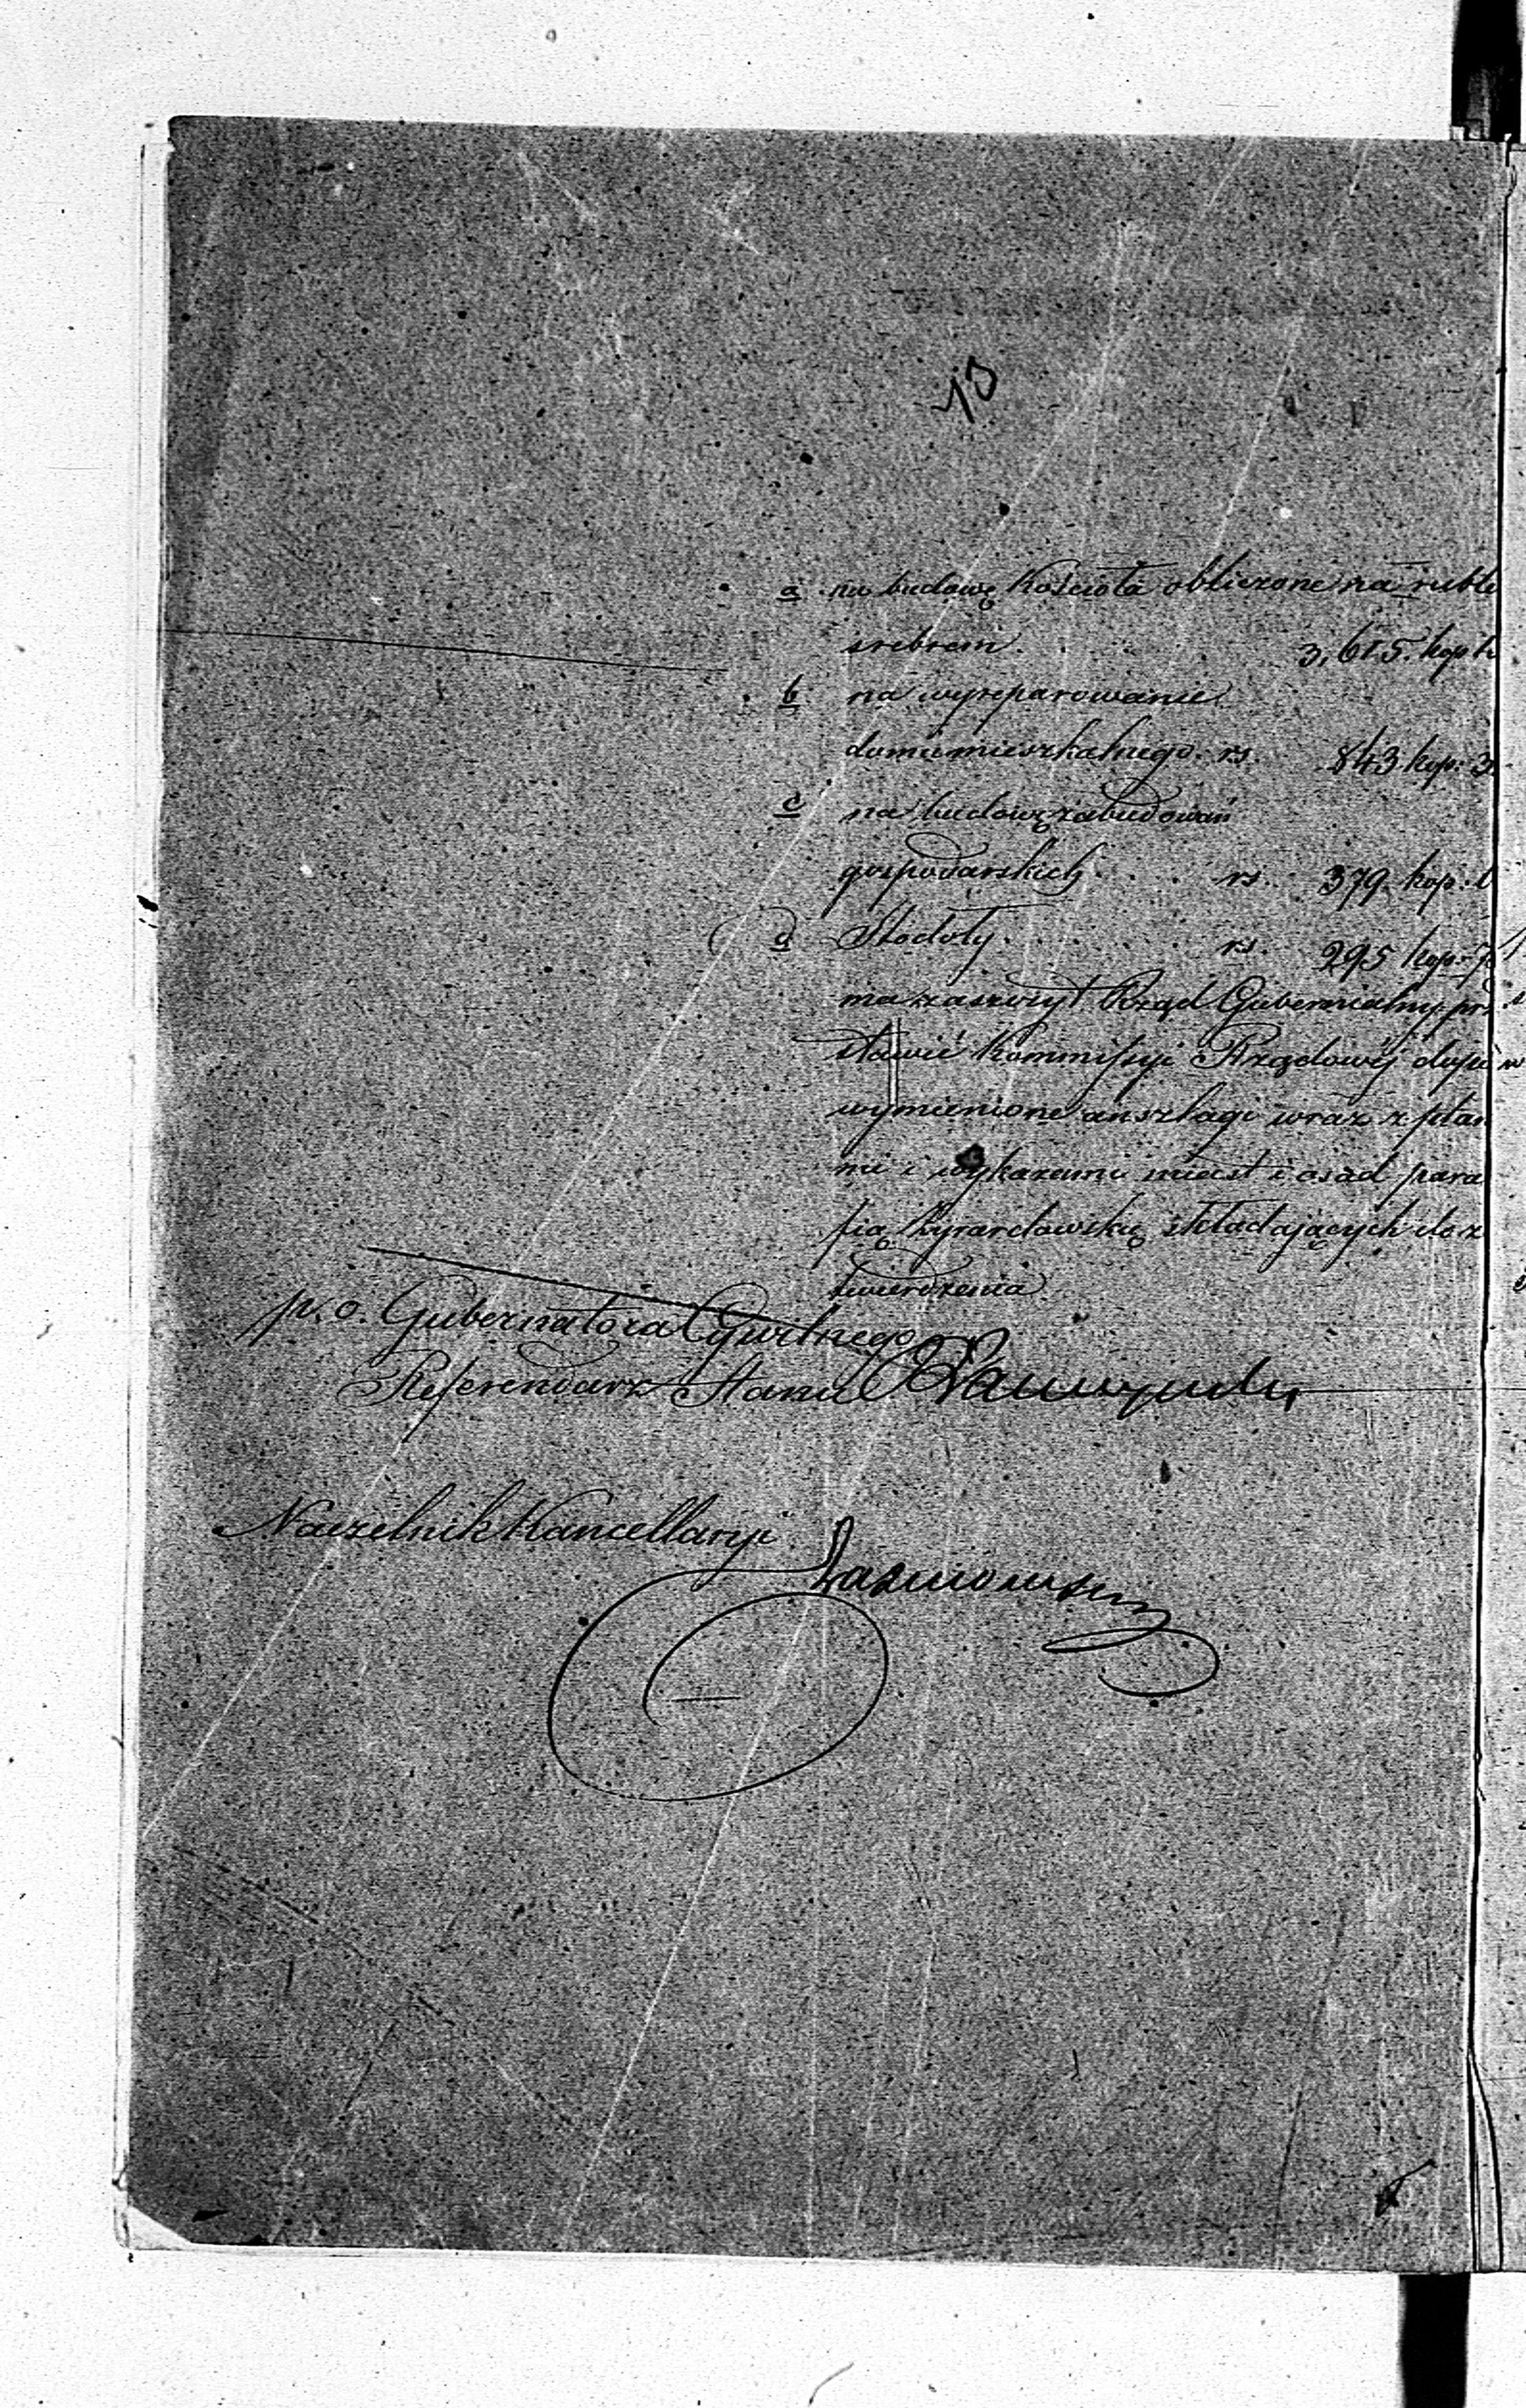 13
a na budowę Kościoła obliczone na rubli
srebrem . 3,615. kop
b na wyreparowanie
domu mieszkalnego. rs. 843 kop: 3
c na budowę zabudowań
gospodarskich . . . rs. 379. kop:
d Stodoły . . . rs. 295 kop: 7
ma zaszczyt Rząd Gubernialny prz
stawić Kommissyi Rządowéj
wymienione anszlagi wraz z plan
mi i wykazami miast i osad para
fią Żyrardowską składających do z
twierdzenia
p. o. Gubernatora Cywilnego
Referendarz Stanu
Naczelnik Kancellaryi